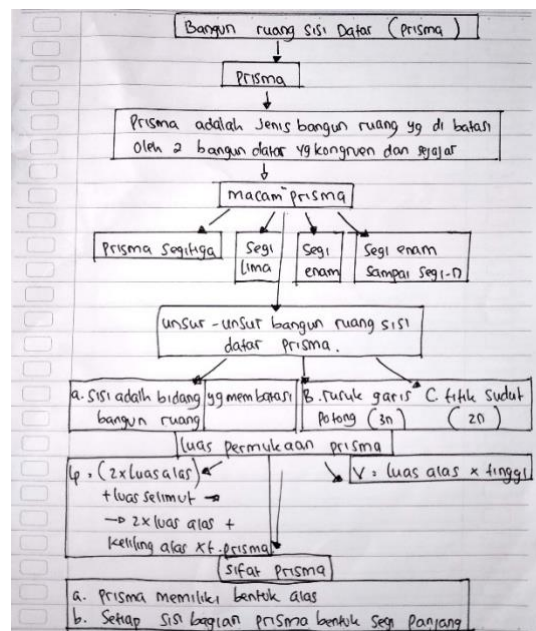 Bangun ruang sisi Datar (Prisma)
Prisma
Prisma adalah Jenis bangun ruang yg di batasi
Oleh 2 bangun datar yg kongruen dan sejajar
macam" prisma
Prisma segitiga
Segi
Lima
Segi
enam
Segi enam
Sampai Segi-n
unsur-unsur bangun ruang sisi
datar Prisma.
a. Sisi adalh bidang yg membatasi
bangun ruang
B. rusuk garis
Potong (3n)
C titik sudut
(2n)
luas permukaan prisma
Lp = (2xluas alas)
+ luas selimut →
→ 2x luas alas +
Keliling alas xt. prisma
V = luas alas x tinggi
Sifat Prisma
a. Prisma memiliki bentuk alas
b. Setiap sisi bagian prisma bentuk segi panjang